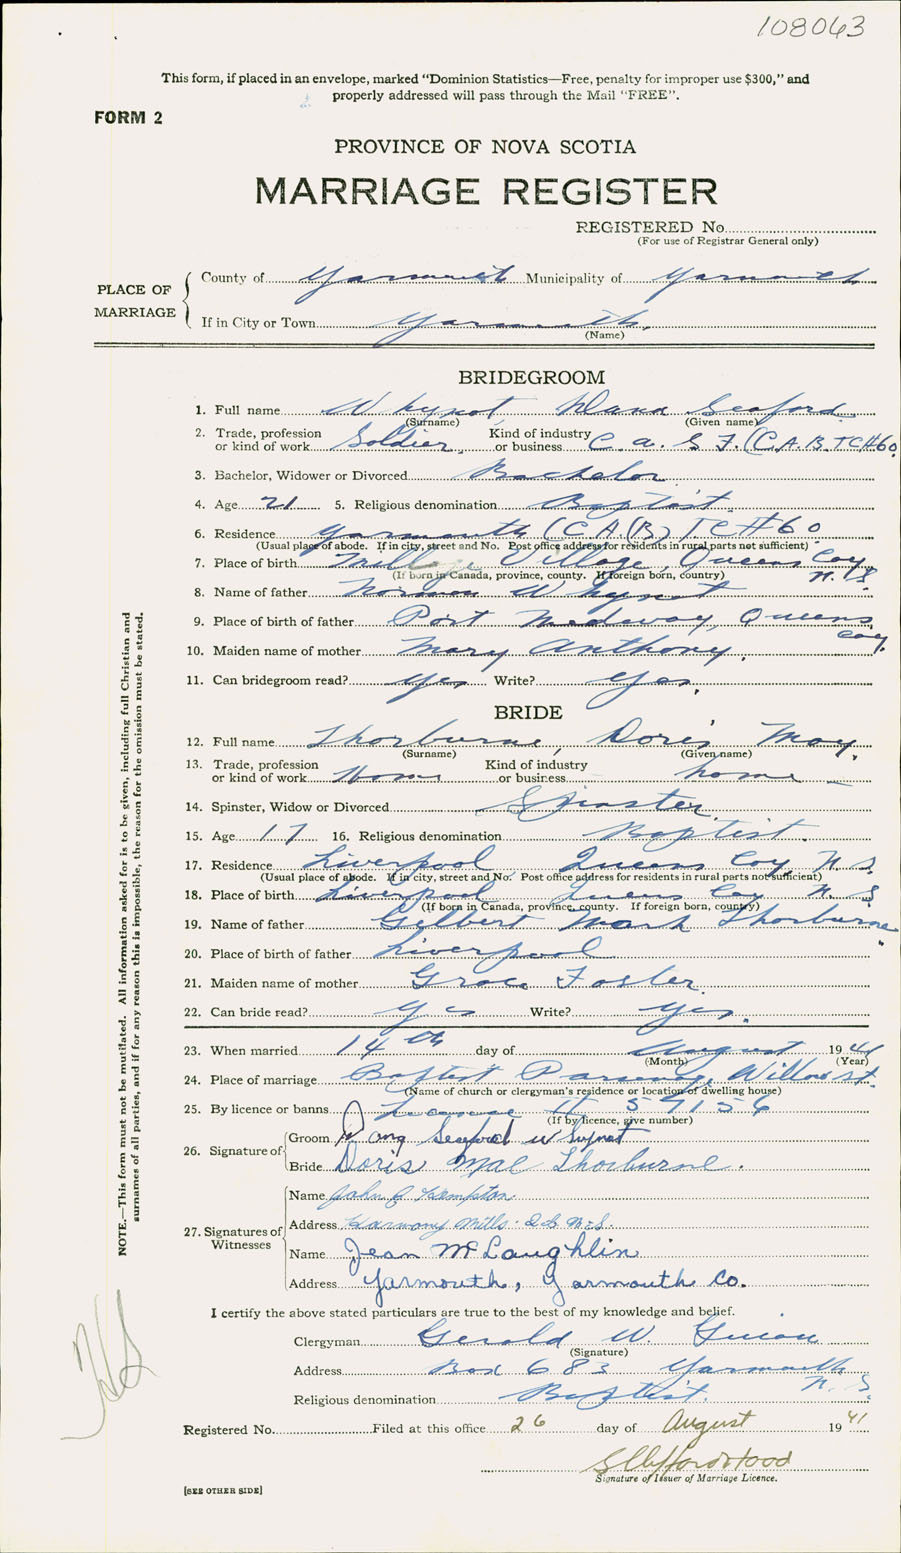 108063
This form, if placed in an envelope, marked “Dominion Statistics—Free, penalty for improper use $300,” and
properly addressed will pass through the Mail “FREE”.
FORM 2
PROVINCE OF NOVA SCOTIA
MARRIAGE REGISTER
REGISTERED No.
(For use of Registrar General only)
PLACE OF MARRIAGE
County of Yarmouth Municipality of Yarmouth
If in City or Town Yarmouth.
(Name)
BRIDEGROOM
1. Full name Whynot, Seaford
(Surname) (Given name)
2. Trade, profession or kind of work Soldier. Kind of industry or business C. A. S. F. (C.A.B.T.C.#60
3. Bachelor, Widower or Divorced Bachelor
4. Age 21 5. Religious denomination Baptist.
6. Residence Yarmouth (C A (B) T.C #60
(Usual place of abode. If in city, street and No. Post office address for residents in rural parts not sufficient)
7. Place of birth Village, Queens Coy N.S.
(If born in Canada, province, county. If foreign born, country)
8. Name of father Norman Whynot
9. Place of birth of father Port Medway, Queens Coy.
10. Maiden name of mother Mary Anthony.
11. Can bridegroom read? yes Write? yes.
BRIDE
12. Full name Thorburne, Doris May.
(Surname) (Given name)
13. Trade, profession or kind of work Home Kind of industry or business home
14. Spinster, Widow or Divorced Spinster
15. Age 17 16. Religious denomination Baptist.
17. Residence Liverpool Queens Coy N.S.
(Usual place of abode. If in city, street and No. Post office address for residents in rural parts not sufficient)
18. Place of birth Liverpool Queens Coy N.S
(If born in Canada, province, county. If foreign born, country)
19. Name of father Gilbert Mark Thorburne
20. Place of birth of father Liverpool
21. Maiden name of mother Grace Foster.
22. Can bride read? yes Write? yes.
23. When married 14th day of August 1941
(Month) (Year)
24. Place of marriage Baptist Parsonage, Willow St.
(Name of church or clergyman's residence or location of dwelling house)
25. By licence or banns License # 59156
(If by licence, give number)
26. Signature of Groom Seaford Whynot
Bride Doris Mae Thorburne.
27. Signatures of Witnesses
Name John Kempton
Address Harmony Mills. N.S.
Name Jean McLaughlin
Address Yarmouth, Yarmouth Co.
I certify the above stated particulars are true to the best of my knowledge and belief.
Clergyman Gerald W. Guiou
(Signature)
Address Box 683 Yarmouth N.S.
Religious denomination Baptist.
Registered No. Filed at this office 26 day of August 1941
S Clifford Hood
Signature of Issuer of Marriage Licence.
[SEE OTHER SIDE]
NOTE.—This form must not be mutilated. All information asked for is to be given, including full Christian and
surnames of all parties, and if for any reason this is impossible, the reason for the omission must be stated.